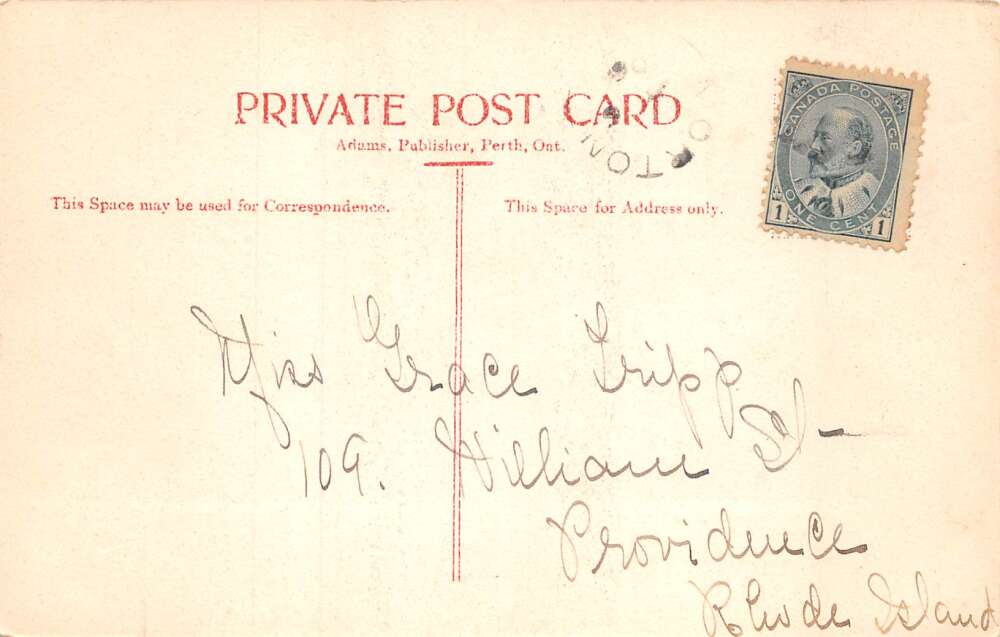 PRIVATE POST CARD
Adams, Publisher, Perth, Ont.
This Space may be used for Correspondence.
This Space for Address only.
CANADA POSTAGE
ONE CENT
1 1
Miss Grace Tripp
109. William St-
Providence
Rhode Island